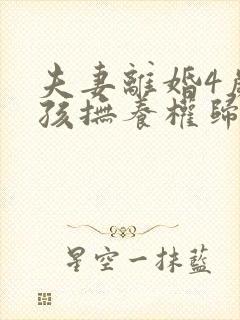 夫妻離婚4歲
孩撫養權歸
星空一抹藍